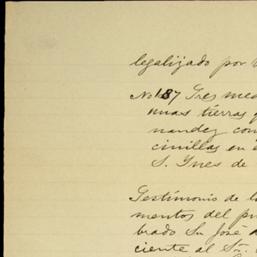 legalizado por
No 187 Tres med
unas tierras
nandez con
cinillas en
S. Ynes de
Testimonio de l
mentos del pri
brado Sn José
ciente al Sr.